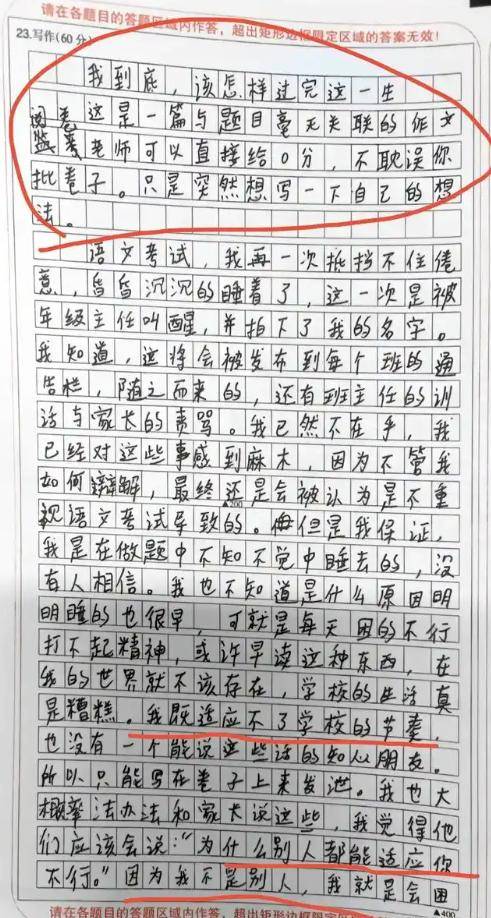 请在各题目的答题区域内作答，超出矩形边框限定区域的答案无效！
23.写作(60分)
我到底，该怎样过完这一生
阅卷这是一篇与题目毫无关联的作文
监卷老师可以直接给0分，不耽误你
批卷子。只是突然想写一下自己的想
法。
语文考试，我再一次抵挡不住倦
意，昏昏沉沉的睡着了，这一次是被
年级主任叫醒，并拍下了我的名字。
我知道，这将会被发布到每个班的通
告栏，随之而来的，还有班主任的训
话与家长的责骂。我已然不在乎，我
已经对这些事感到麻木，因为不管我
如何辩解，最终还是会被认为是不重
▲200
视语文考试导致的。但是我保证，
我是在做题中不知不觉中睡去的，没
有人相信。我也不知道是什么原因明
明睡的也很早，可就是每天困的不行
打不起精神，或许早读这种东西，在
我的世界就不该存在，学校的生活真
是糟糕。我既适应不了学校的节奏，
也没有一个能说这些话的知心朋友。
所以只能写在卷子上来发泄。我也大
概率没办法和家长说这些，我觉得他
们应该会说：“为什么别人都能适应你
不行。”因为我不是别人，我就是会困
▲400
请在各题目的答题区域内作答，超出矩形边框限定区域的答案无效！